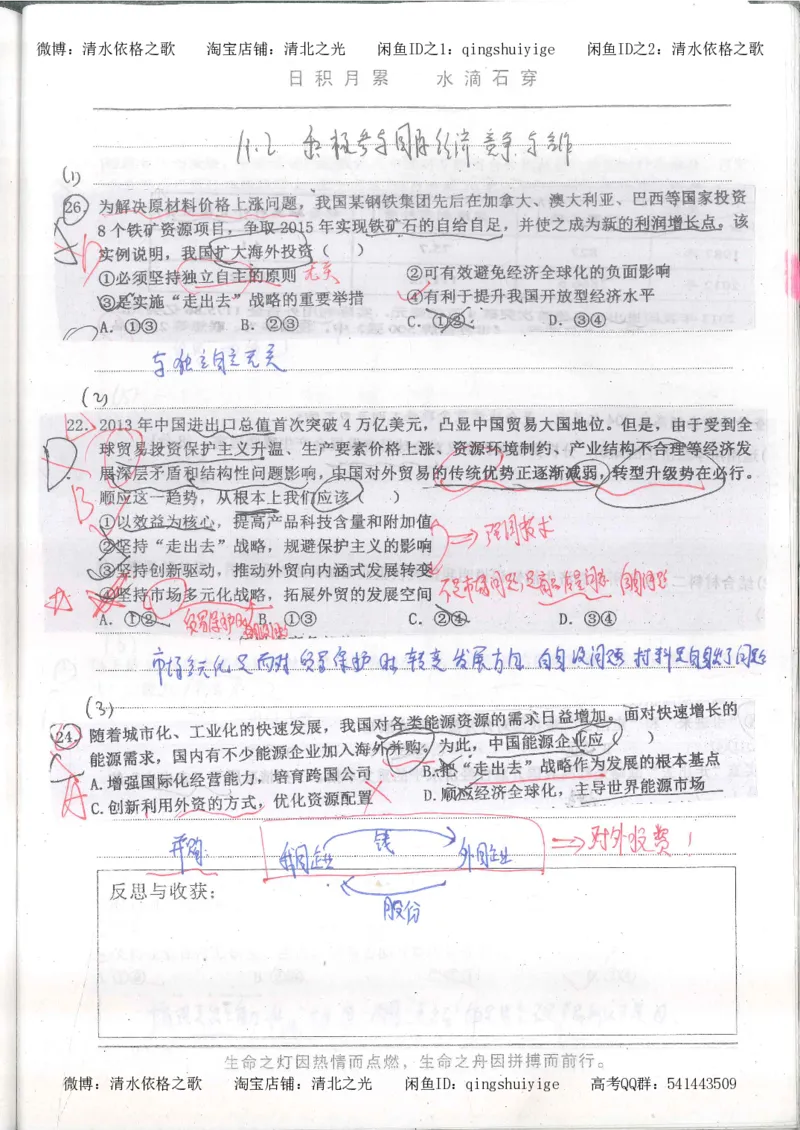 微博：清水依格之歌 淘宝店铺：清北之光 闲鱼ID之1：qingshuiyige 闲鱼ID之2：清水依格之歌
日积月累 水滴石穿
11.2 积极参与国际经济竞争与合作
(1)
26 为解决原材料价格上涨问题，我国某钢铁集团先后在加拿大、澳大利亚、巴西等国家投资
8个铁矿资源项目，争取2015年实现铁矿石的自给自足，并使之成为新的利润增长点。该
实例说明，我国扩大海外投资（ ）
①必须坚持独立自主的原则 无关 ②可有效避免经济全球化的负面影响
③是实施“走出去”战略的重要举措 ④有利于提升我国开放型经济水平
A. ①③ B. ②③ C. ①④ D. ③④
与独立自主无关
(2)
22. 2013年中国进出口总值首次突破4万亿美元，凸显中国贸易大国地位。但是，由于受到全
球贸易投资保护主义升温、生产要素价格上涨、资源环境制约、产业结构不合理等经济发
展深层矛盾和结构性问题影响，中国对外贸易的传统优势正逐渐减弱，转型升级势在必行。
顺应这一趋势，从根本上我们应该（ ）
①以效益为核心，提高产品科技含量和附加值
②坚持“走出去”战略，规避保护主义的影响
③坚持创新驱动，推动外贸向内涵式发展转变
④坚持市场多元化战略，拓展外贸的发展空间
A. ①② B. ①③ C. ②④ D. ③④
市场多元化是面对贸易保护时转变发展方向 自身没问题 材料是自身出了问题
(3)
24. 随着城市化、工业化的快速发展，我国对各类能源资源的需求日益增加。面对快速增长的
能源需求，国内有不少能源企业加入海外并购。为此，中国能源企业应（ ）
A.增强国际化经营能力，培育跨国公司 B.把“走出去”战略作为发展的根本基点
C.创新利用外资的方式，优化资源配置 D.顺应经济全球化，主导世界能源市场
并购： 我国企业 钱 外国企业
股份
反思与收获：
生命之灯因热情而点燃，生命之舟因拼搏而前行。
微博：清水依格之歌 淘宝店铺：清北之光 闲鱼ID：qingshuiyige 高考QQ群：541443509